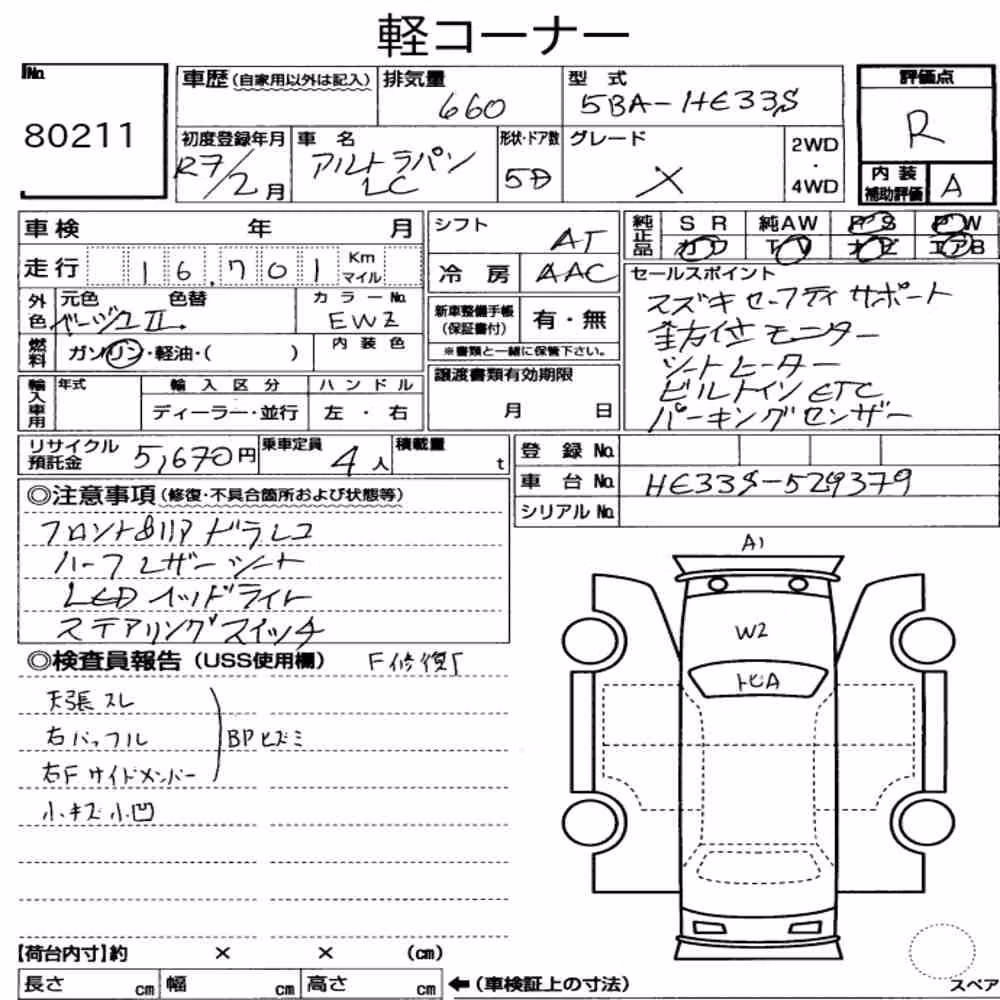 軽コーナー
No.
80211
車歴（自家用以外は記入）
排気量
660
型式
5BA-HE33S
評価点
R
初度登録年月
R7/2月
車名
アルトラパン
LC
形状・ドア数
5D
グレード
X
2WD
・
4WD
内装
補助評価
A
車検 年 月
シフト
AT
純正品
SR 純AW PS PW
カワ TV ナビ エアB
走行 16,701 Km
マイル
冷房
AAC
セールスポイント
スズキセーフティサポート
全方位モニター
シートヒーター
ビルトインETC
パーキングセンサー
外色
元色 色替
ベージュII.
カラーNo.
EWZ
新車整備手帳
（保証書付）
有・無
※書類と一緒に保管下さい。
燃料
ガソリン・軽油・（ ）
内装色
輸入車用
年式
輸入区分
ハンドル
ディーラー・並行
左・右
譲渡書類有効期限
月 日
リサイクル
預託金
5,670円
乗車定員
4人
積載量
t
登録No.
車台No.
HE33S-529379
シリアルNo.
◎注意事項（修復・不具合箇所および状態等）
フロント&リア ドラレコ
ハーフレザーシート
LEDヘッドライト
ステアリングスイッチ
◎検査員報告（USS使用欄）
F修復
天張スレ
右バッフル
BPヒズミ
右Fサイドメンバー
小キズ小凹
A1
W2
トビA
【荷台内寸】約 × × （cm）
長さ cm 幅 cm 高さ cm
←（車検証上の寸法）
スペア